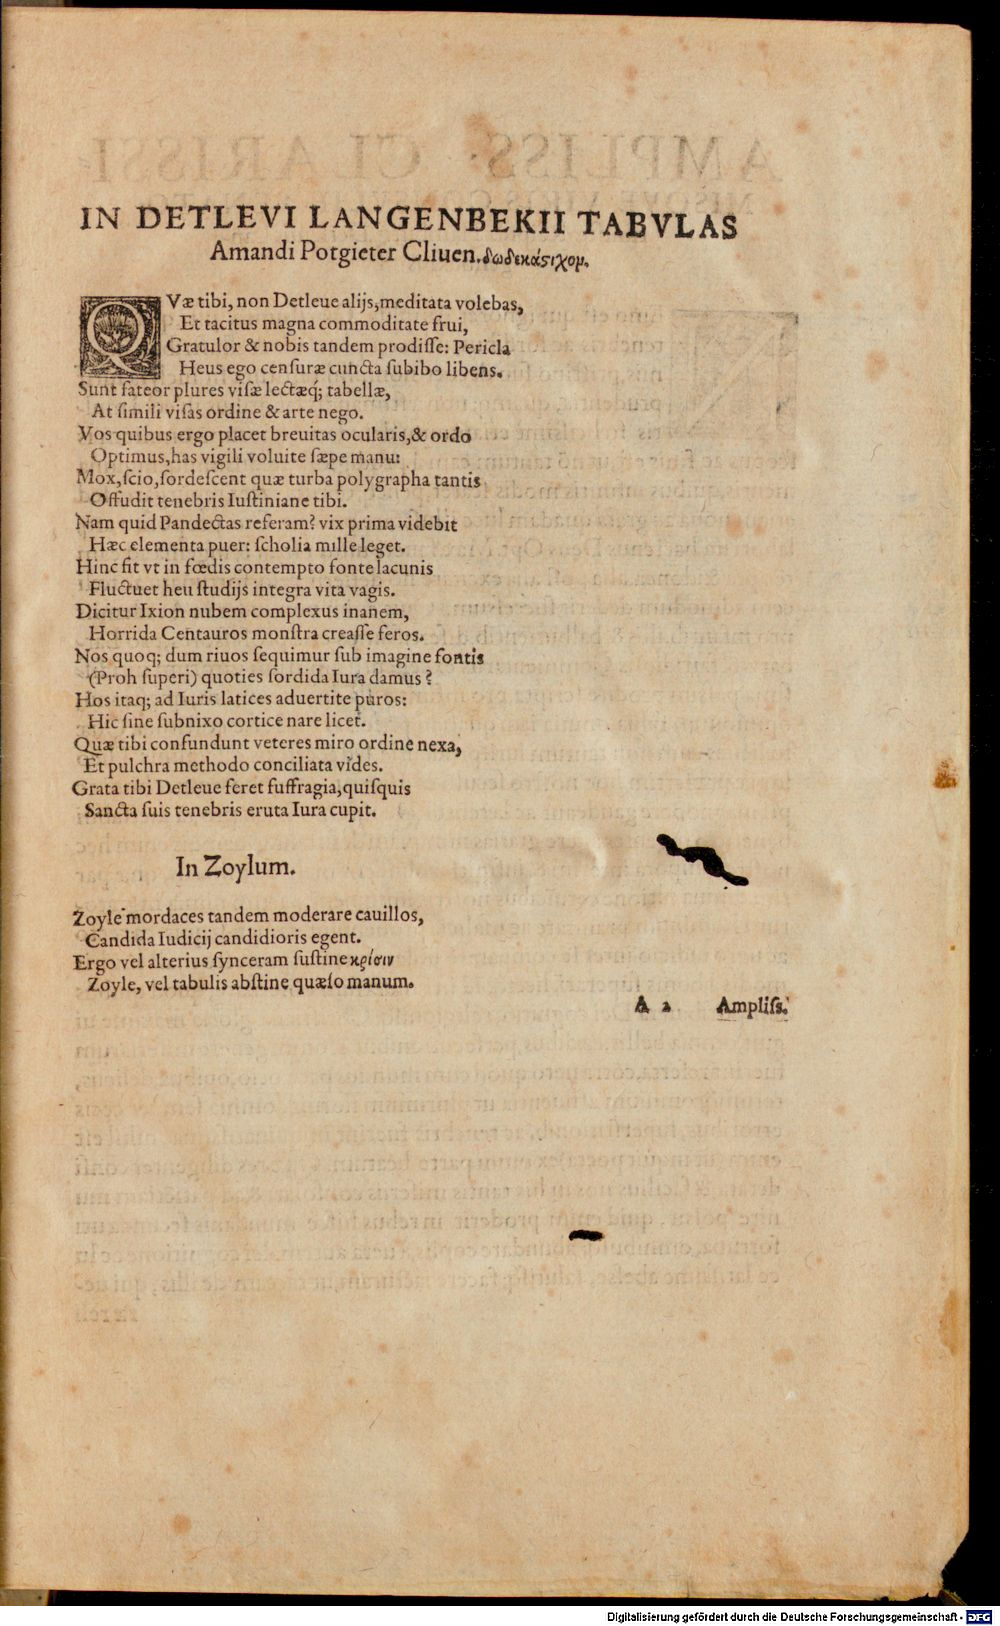 IN DETLEVI LANGENBEKII TABVLAS
Amandi Potgieter Cliuen. δωδεκάϛιχομ.
QVæ tibi, non Detleue alijs, meditata volebas,
Et tacitus magna commoditate frui,
Gratulor & nobis tandem prodiſſe: Pericla
Heus ego cenſuræ cuncta ſubibo libens.
Sunt fateor plures viſæ lectæq́; tabellæ,
At ſimili viſas ordine & arte nego.
Vos quibus ergo placet breuitas ocularis, & ordo
Optimus, has vigili voluite ſæpe manu:
Mox, ſcio, ſordeſcent quæ turba polygrapha tantis
Offudit tenebris Iuſtiniane tibi.
Nam quid Pandectas referam? vix prima videbit
Hæc elementa puer: ſcholia mille leget.
Hinc fit vt in fœdis contempto fonte lacunis
Fluctuet heu ſtudijs integra vita vagis.
Dicitur Ixion nubem complexus inanem,
Horrida Centauros monſtra creaſſe feros.
Nos quoq; dum riuos ſequimur ſub imagine fontis
(Proh ſuperi) quoties ſordida Iura damus?
Hos itaq; ad Iuris latices aduertite puros:
Hic ſine ſubnixo cortice nare licet.
Quæ tibi confundunt veteres miro ordine nexa,
Et pulchra methodo conciliata vides.
Grata tibi Detleue feret ſuffragia, quiſquis
Sancta ſuis tenebris eruta Iura cupit.
In Zoylum.
Zoyle mordaces tandem moderare cauillos,
Candida Iudicij candidioris egent.
Ergo vel alterius ſynceram ſuſtine κρίσιν
Zoyle, vel tabulis abſtine quæſo manum.
A 2 Ampliſs.
Digitalisierung gefördert durch die Deutsche Forschungsgemeinschaft - DFG